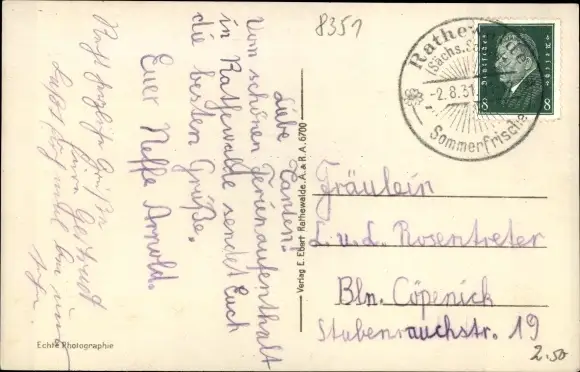 8351
Liebe Tanten!
Vom schönen Ferienaufenthalt
in Rathewalde sendet Euch
die besten Grüße,
Euer Neffe Arnold.
Recht herzliche Grüße
Eure Gertraut
Echte Photographie
Verlag E. Ebert Rathewalde. A. & R.A. 6700
Rathewalde
(Sächs.
-2.8.31
Sommerfrische
Deutsches Reich
8 8
Fräulein
L. u. d. Rosentreter
Bln. Cöpenick
Stubenrauchstr. 19
2.50